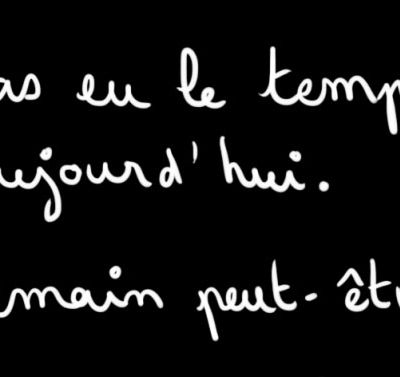 as eu le temp
ujourd'hui.
main peut-êt